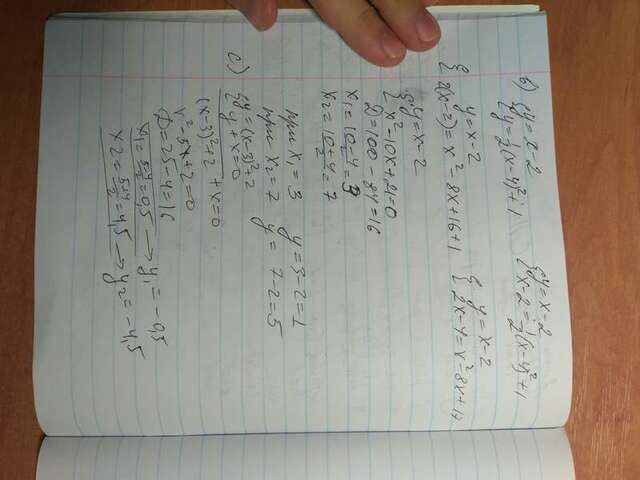 в) {y = x - 2
{y = 1/2(x-4)²+1
{y = x - 2
{x - 2 = 1/2(x-4)²+1
{y = x - 2
{2(x-2) = x² - 8x + 16 + 1
{y = x - 2
{2x - 4 = x² - 8x + 17
{y = x - 2
{x² - 10x + 21 = 0
D = 100 - 84 = 16
x₁ = (10 - 4)/2 = 3
x₂ = (10 + 4)/2 = 7
при x₁ = 3 y = 3 - 2 = 1
при x₂ = 7 y = 7 - 2 = 5
c) {y = (x-3)² + 2
{y + x = 0
(x-3)² + 2 + x = 0
x² - 5x + 2 = 0
D = 25 - 4 = 16
= 0,5 → y₁ = -0,5
= 4,5 → y₂ = -4,5